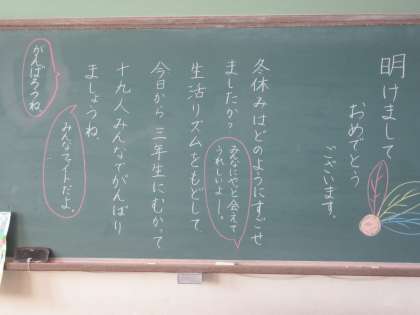 明けまして
おめでとう
ございます。
冬休みはどのようにすごせ
ましたか?
みんなにやっと会えて
うれしいよー。
生活リズムをもどして、
今日から 三年生にむかって
十九人みんなでがんばり
ましょうね。
みんなファイトだよ。
がんばろうね。